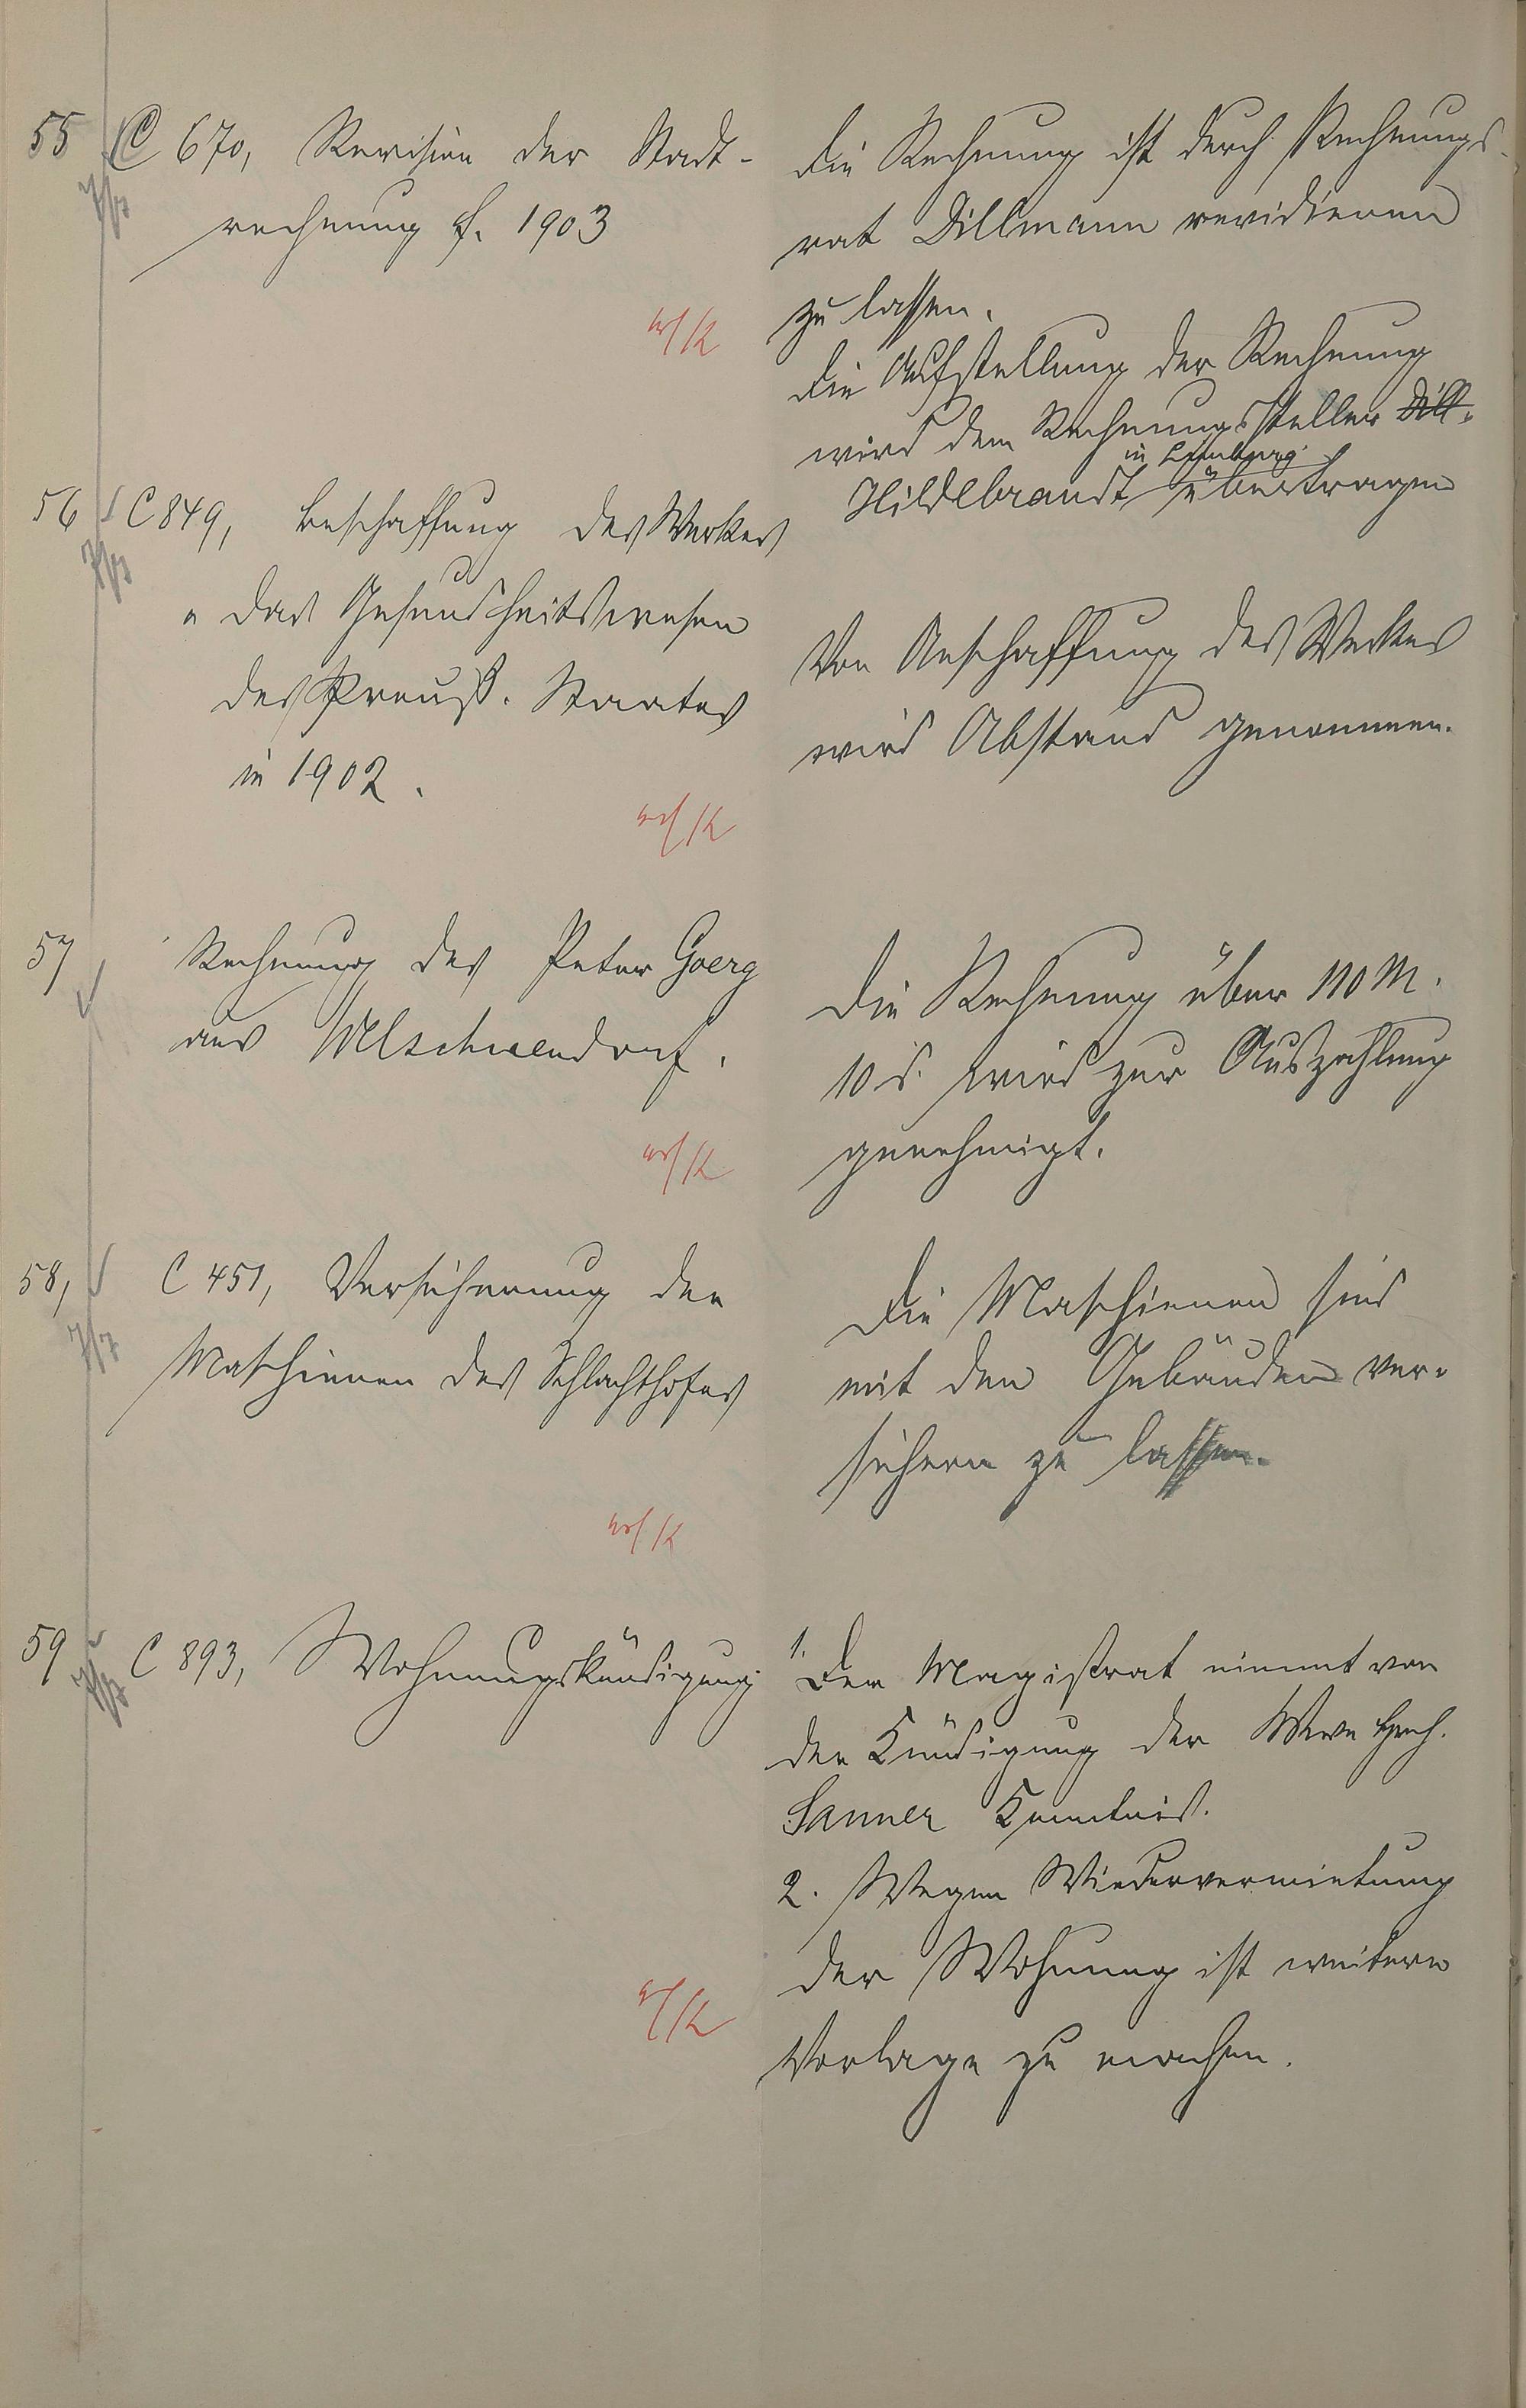 55 C 670, Revision der Stadt-
rechnung f. 1903
Die Rechnung ist durch Rechnungs-
rat Dillmann revidieren
zu lassen.
Die Aufstellung der Rechnung
wird dem Rechnungssteller Dill-
in Limburg
Hildebrandt übertragen
56 C 849, Beschaffung des Werkes
"Das Gesundheitswesen
des Preuß. Staates
in 1902.
Von Anschaffung des Werkes
wird Abstand genommen.
57 Rechnung des Peter Goerg
aus
Die Rechnung über 110 M.
10 d. wird zur Auszahlung
genehmigt.
58, C 451, Versicherung der
Maschinen des Schlachthofes
Die Maschienen sind
mit den Gebäuden ver-
sichern zu lassen.
59 C 893, Wohnungskündigung
1. Der Magistrat nimmt von
der Kündigung der Wwe
Sanner Kenntnis.
2. Wegen Wiedervermietung
der Wohnung ist weitere
Vorlage zu machen.